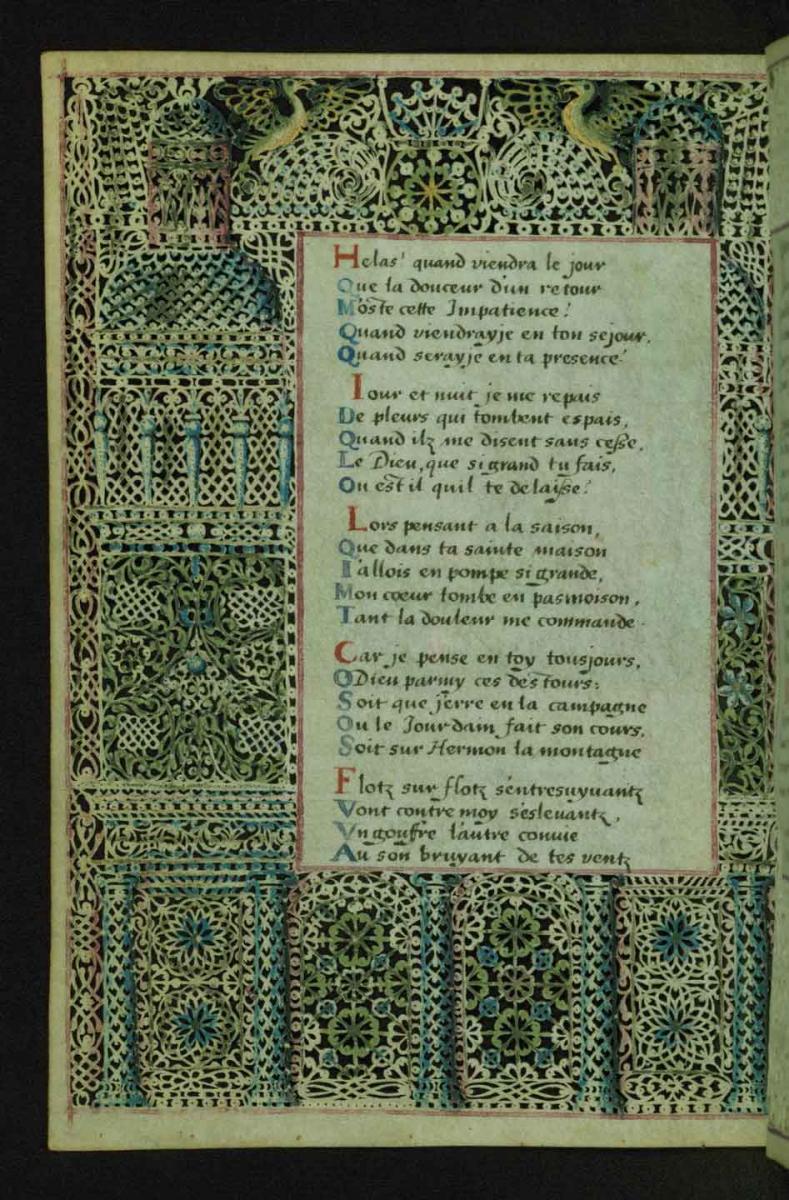 Helas! quand viendra le jour
Que la douceur dun retour
M'oste cette Impatience!
Quand viendrayje en ton sejour,
Quand serayje en ta presence!
Iour et nuit je me repais
De pleurs qui tombent espais,
Quand ilz me disent sans cesse,
Le Dieu, que si grand tu fais,
Ou est il qu'il te delaisse!
Lors pensant a la saison,
Que dans ta sainte maison
I'allois en pompe si grande,
Mon coeur tombe en pasmoison,
Tant la douleur me commande.
Car je pense en toy tousjours,
O Dieu parmy ces destours:
Soit que j'erre en la campagne
Ou le Jourdain fait son cours,
Soit sur Hermon la montagne
Flotz sur flotz s'entresuyuantz
Vont contre moy s'eslevantz,
Vn goufre l'autre convie
Au son bruyant de tes ventz